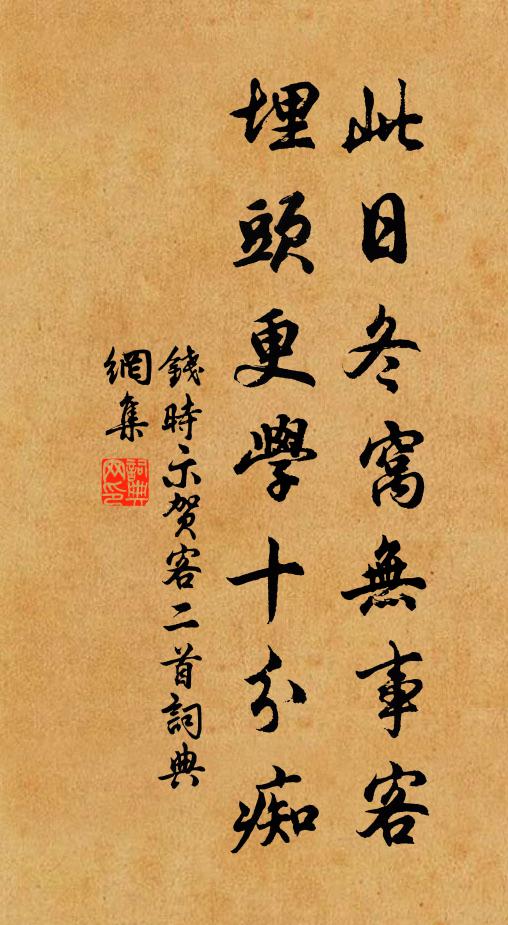 此日冬窩無事客
埋頭更學十分痴
錢時示賀客二首詞典
網集
詞典
网印